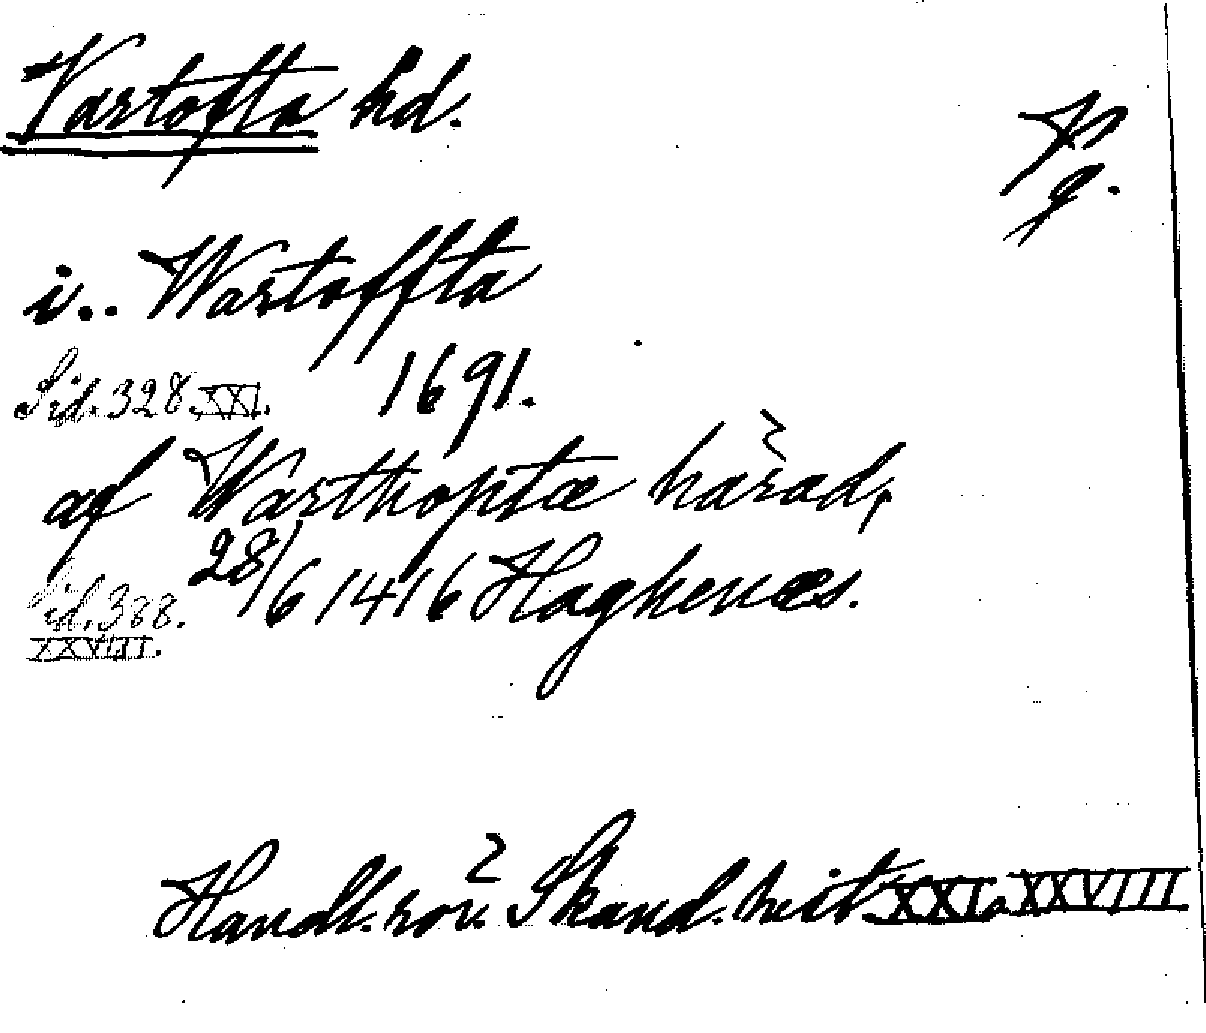 Vartofta hd.
Vg.
i.. Wartoffta
1691.
Sid. 328. XXI.
af Warthoptæ härad,
28/6 1416 Haghenæs.
Sid. 388.
XXVIII.
Handl. rör. Skand. hist. XXI o XXVIII